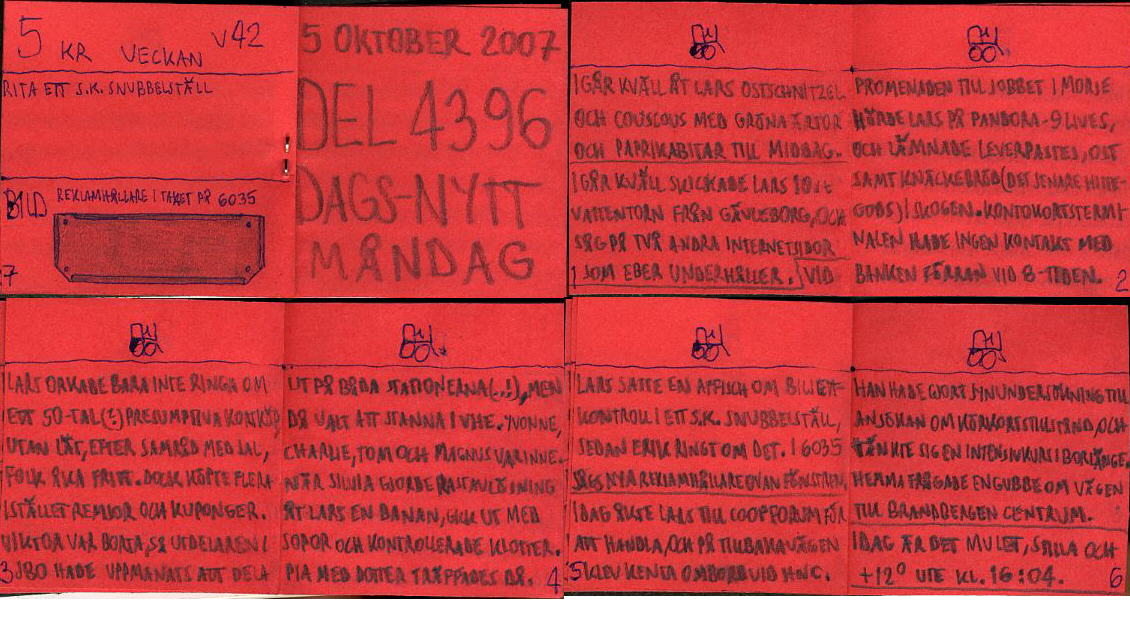 5 KR VECKAN V42
RITA ETT S.K. SNUBBELSTÄLL
BILD REKLAMHÅLLARE I TAKET PÅ 6035
7
5 OKTOBER 2007
DEL 4396
DAGS-NYTT
MÅNDAG
I GÅR KVÄLL ÅT LARS OSTSCHNITZEL
OCH COUSCOUS MED GRÖNA ÄRTOR
OCH PAPRIKABITAR TILL MIDDAG.
I GÅR KVÄLL SKICKADE LARS
VATTENTORN FRÅN GÄVLEBORG, OCH
SÅG PÅ TVÅ ANDRA INTERNETSIDOR
1 SOM EBER UNDERHÅLLER. VID
PROMENADEN TILL JOBBET I MORSE
HÖRDE LARS PÅ PANDORA-9 LIVES,
OCH LÄMNADE LEVERPASTEJ, OST
SAMT KNÄCKEBRÖD (DET SENARE HITTE-
GODS) I SKOGEN. KONTOKORTSTERMI-
NALEN HADE INGEN KONTAKT MED
BANKEN FÖRRÄN VID 8-TIDEN. 2
LARS ORKADE BARA INTE RINGA OM
ETT 50-TAL (!) PRESUMTIVA KORTKÖP
UTAN LÄT, EFTER SAMRÅD MED JAL,
FOLK ÅKA FRITT. DOCK KÖPTE FLERA
ISTÄLLET REMSOR OCH KUPONGER.
VIKTOR VAR BORTA, SÅ UTDELAREN I
3 JBO HADE UPPMANATS ATT DELA
UT PÅ BÅDA STATIONERNA (..!), MEN
DÅ VALT ATT STANNA I VHE. YVONNE,
CHARLIE, TOM OCH MAGNUS VAR INNE.
NÄR SILVIA GJORDE RASTAVLÖSNING
ÅT LARS EN BANAN, GICK UT MED
SOPOR OCH KONTROLLERADE KLOTTER.
PIA MED DOTTER TRÄFFADES DÅ. 4
LARS SATTE EN AFFISCH OM BILJETT-
KONTROLL I ETT S.K. SNUBBELSTÄLL,
SEDAN ERIK RINGT OM DET. I 6035
SÅGS NYA REKLAMHÅLLARE OVAN FÖNSTREN.
IDAG ÅKTE LARS TILL COOP FORUM FÖR
ATT HANDLA, OCH PÅ TILLBAKAVÄGEN
5 KLEV KENTA OMBORD VID HNC.
HAN HADE GJORT SYNUNDERSÖKNING TILL
ANSÖKAN OM KÖRKORTSTILLSTÅND, OCH
TÄNKTE SIG EN INTENSIVKURS I BORLÄNGE.
HEMMA FRÅGADE EN GUBBE OM VÄGEN
TILL BRANDBERGEN CENTRUM.
IDAG ÄR DET MULET, STILLA OCH
+12° UTE KL. 16:04. 6